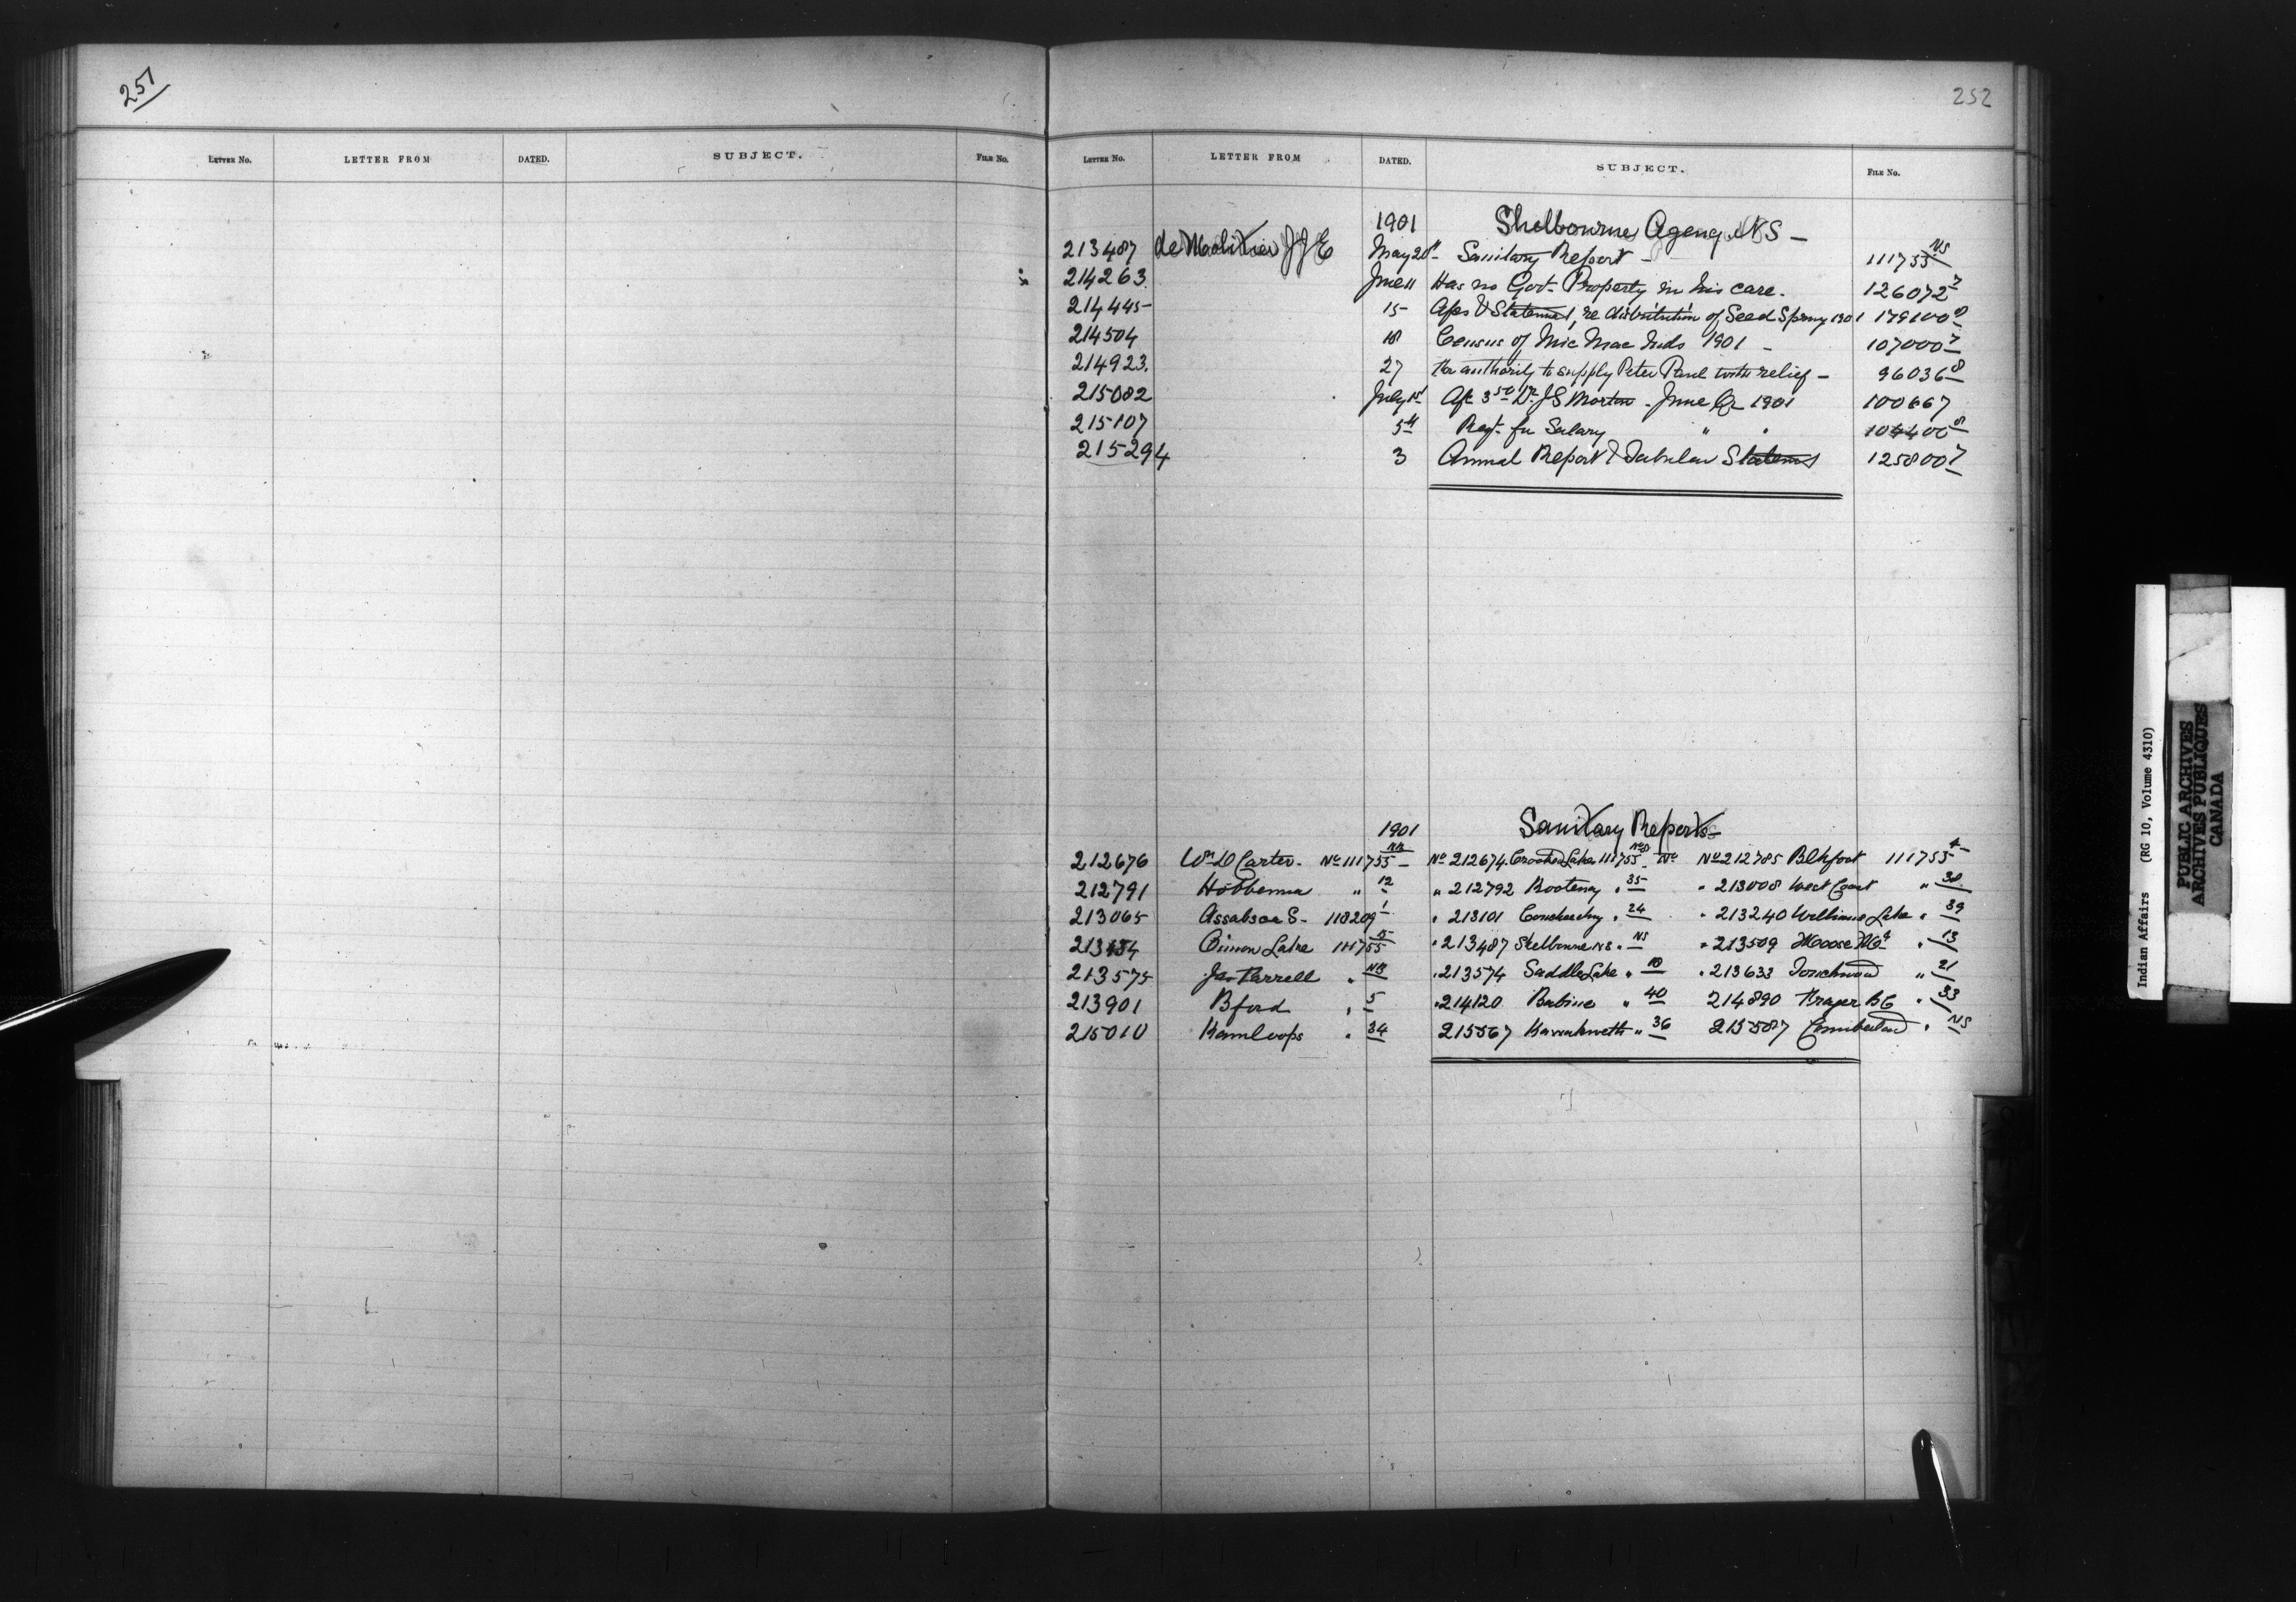 251
LETTER NO. LETTER FROM DATED. SUBJECT. FILE NO.
252
LETTER NO. LETTER FROM DATED. SUBJECT. FILE NO.
1901 Shelbourne Agency NS -
213487 de Molitor JJE May 20th Sanitary Report - 111755 NS
214263. June 11 Has no Govt. Property in his care. 126072 7
214445 15 Apes & Statement, re distribution of Seed Spring 1901 179100
214504 18 Census of Mic Mac Inds 1901 - 107000 7
214923. 27 For authority to supply Peter Paul with relief - 96036 8
215082 July 1st 3 50 Dr. J S Morton - June Qr 1901 100667
215107 5th Regt. for Salary " " 104400 8
215294 3 Annual Report & Tabular Statement 125800 7
1901 Sanitary Reports
212676 Wm D Carter - No 111755 NB - No 212674 Crooked Lake 111755 No 212785 Blkfoot 111755 4
212791 Hobbema " 12 " 212792 Kootenay " 35 " 213008 West Coast " 38
213065 Assabsca S - 118209 1 " 213101 " 24 " 213240 Williams Lake " 39
Onion Lake 111755 15 " 213487 Shelbourne NS " NS " 213509 Moose Mt " 13
213575 Jas Farrell " NB " 213574 Saddle Lake " 18 " 213633 Touchwood " 21
213901 Bford " 5 " 214120 Babine " 40 214890 Fraser BC " 33
215010 Kamloops " 34 215567 Kawahkewlth " 36 215587 Cumberland " NS
Indian Affairs (RG 10, Volume 4310)
PUBLIC ARCHIVES
ARCHIVES PUBLIQUES
CANADA